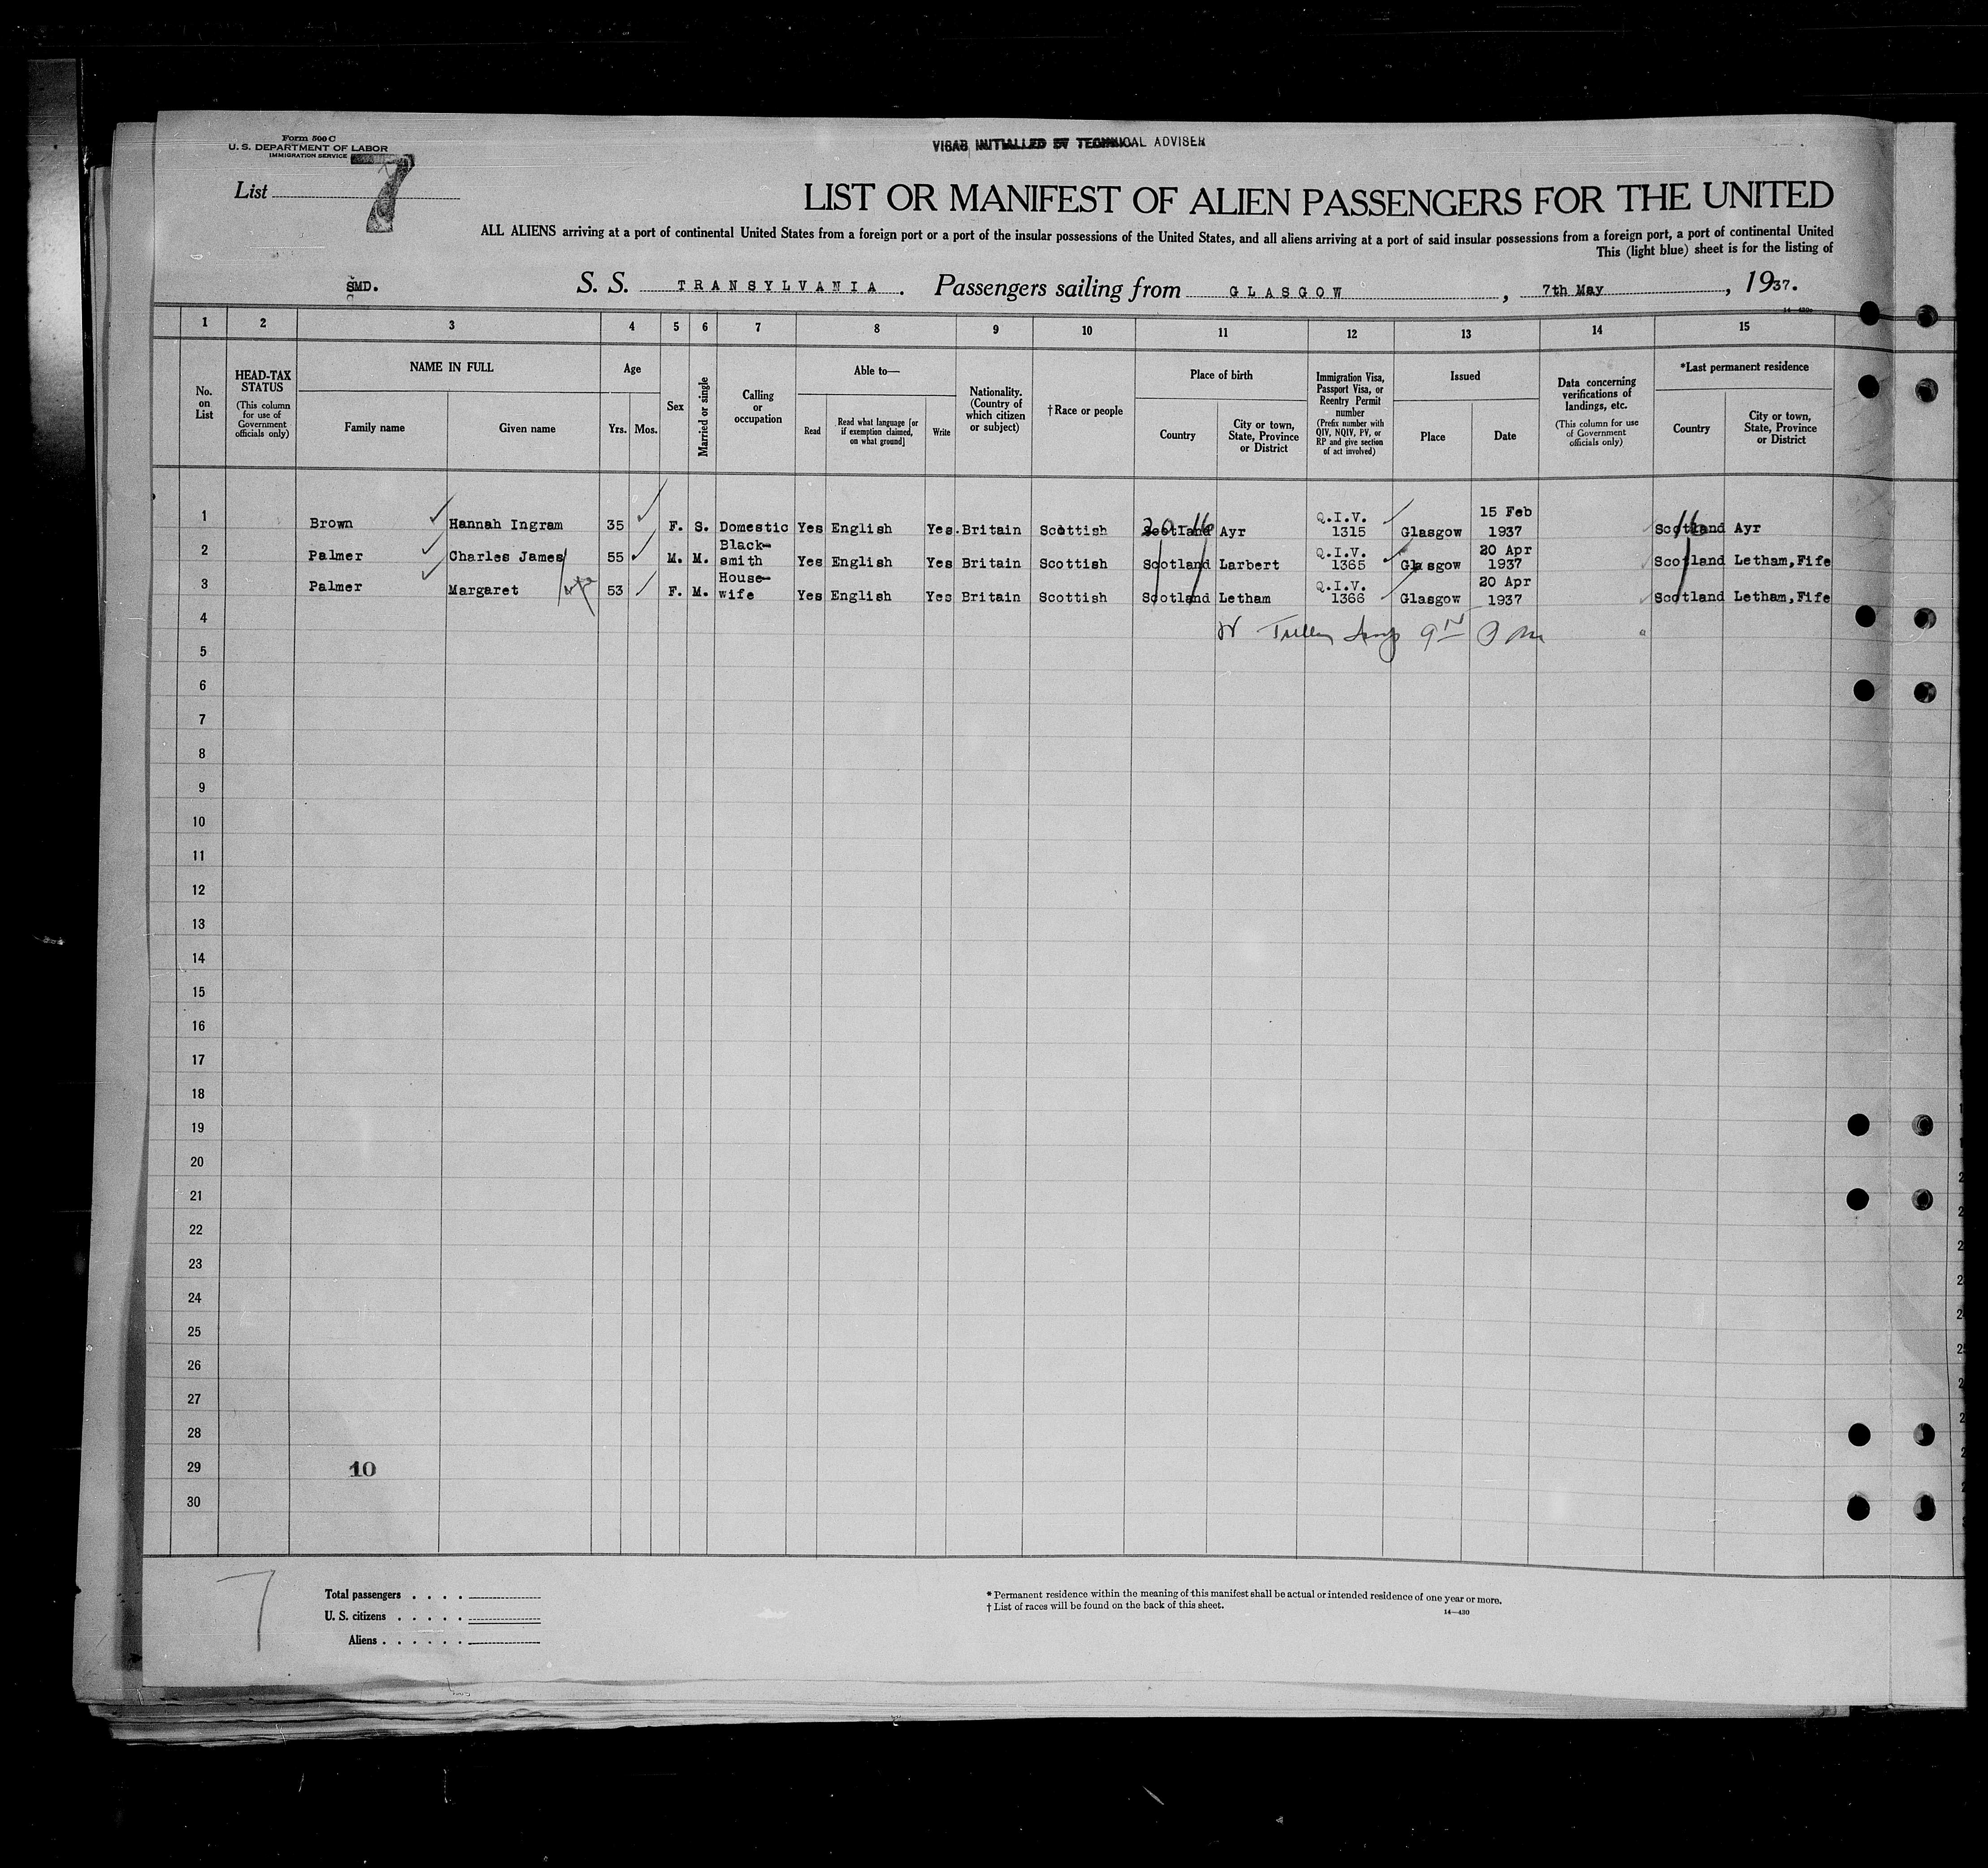 Form 500 C
U. S. DEPARTMENT OF LABOR
IMMIGRATION SERVICE
List 7
VISAS INITIALLED BY TECHNICAL ADVISER
LIST OR MANIFEST OF ALIEN PASSENGERS FOR THE UNITED
ALL ALIENS arriving at a port of continental United States from a foreign port or a port of the insular possessions of the United States, and all aliens arriving at a port of said insular possessions from a foreign port, a port of continental United
This (light blue) sheet is for the listing of
SMD.
S. S. TRANSYLVANIA. Passengers sailing from GLASGOW, 7th May, 1937.
1 2 3 4 5 6 7 8 9 10 11 12 13 14 15
No. on List
HEAD-TAX STATUS
(This column for use of Government officials only)
NAME IN FULL
Family name
Given name
Age
Yrs. Mos.
Sex
Married or single
Calling or occupation
Able to—
Read
Read what language [or if exemption claimed, on what ground]
Write
Nationality. (Country of which citizen or subject)
†Race or people
Place of birth
Country
City or town, State, Province or District
Immigration Visa, Passport Visa, or Reentry Permit number
(Prefix number with QIV, NQIV, PV, or RP and give section of act involved)
Issued
Place
Date
Data concerning verifications of landings, etc.
(This column for use of Government officials only)
*Last permanent residence
Country
City or town, State, Province or District
1 Brown Hannah Ingram 35 F. S. Domestic Yes English Yes. Britain Scottish Scotland Ayr Q.I.V. 1315 Glasgow 15 Feb 1937 Scotland Ayr
2 Palmer Charles James 55 M. M. Black-smith Yes English Yes Britain Scottish Scotland Larbert Q.I.V. 1365 Glasgow 20 Apr 1937 Scotland Letham, Fife
3 Palmer Margaret 53 F. M. House-wife Yes English Yes Britain Scottish Scotland Letham Q.I.V. 1366 Glasgow 20 Apr 1937 Scotland Letham, Fife
4
5
6
7
8
9
10
11
12
13
14
15
16
17
18
19
20
21
22
23
24
25
26
27
28
29 10
30
7
Total passengers
U. S. citizens
Aliens
* Permanent residence within the meaning of this manifest shall be actual or intended residence of one year or more.
† List of races will be found on the back of this sheet.
14—430